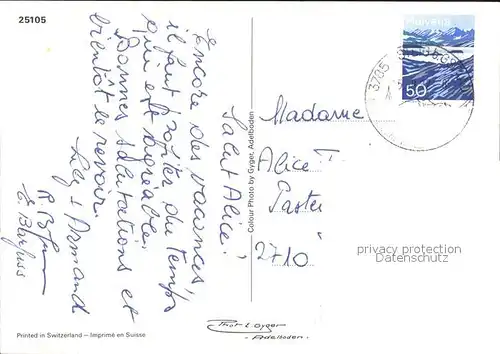 25105
Salut Alice!
Encore des vacances,
il faut profiter du temps
qui est agréable.
Bonnes salutations et
bientôt le revoir.
Lily + Armand
Colour Photo by Gyger, Adelboden
Helvetia
50
3705
Madame
Alice
2710
privacy protection
Datenschutz
Phot. E. Gyger
- Adelboden -
Printed in Switzerland – Imprimé en Suisse